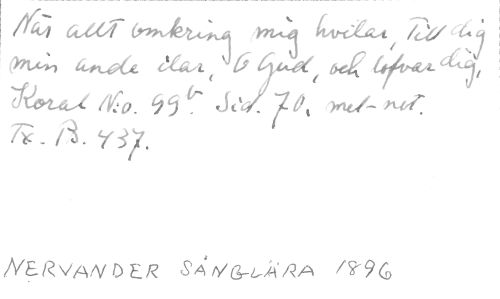 När allt omkring mig hvilar, Till dig
min ande ilar, O Gud, och lofvar dig,
Koral N:o. 99b. Sid. 70. mel-not.
Tx. B. 437.
NERVANDER SÅNGLÄRA 1896